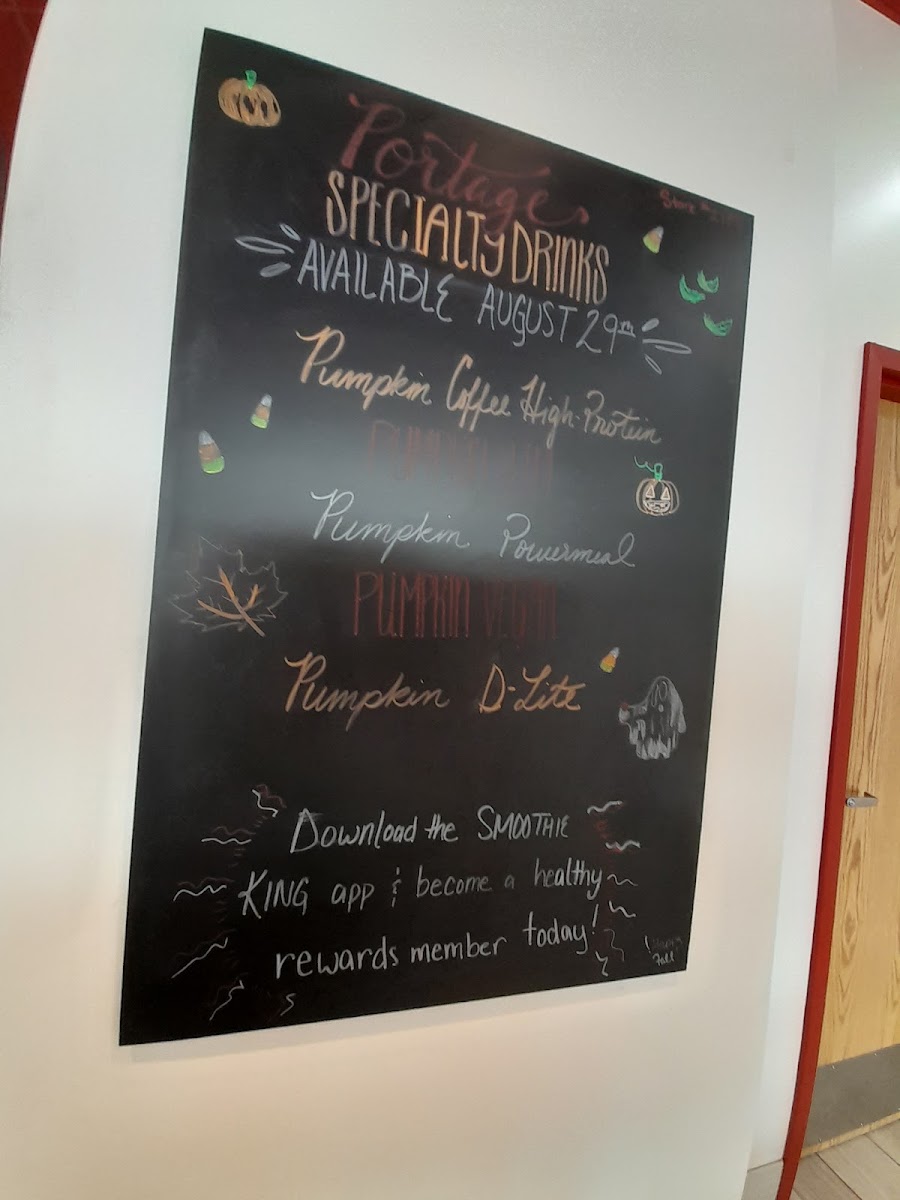 Portage
Store #
SPECIALTY DRINKS
AVAILABLE AUGUST 29TH
Pumpkin Coffee High-Protein
Pumpkin Powermeal
PUMPKIN VEGAN
Pumpkin D-Lite
Download the SMOOTHIE
KING app & become a healthy
rewards member today!
Fall